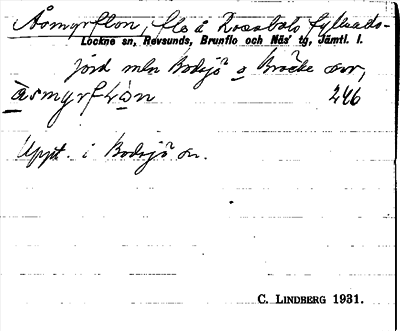 Åsmyrflon, flo å Rossbols fyllnads-
Lockne sn, Revsunds, Brunflo och Näs' tg, Jämtl. l.
jord mln Bodsjö o Bräcke snr,
åsmyrflɔn 246
Uppt. i Bodsjö sn.
C. LINDBERG 1931.